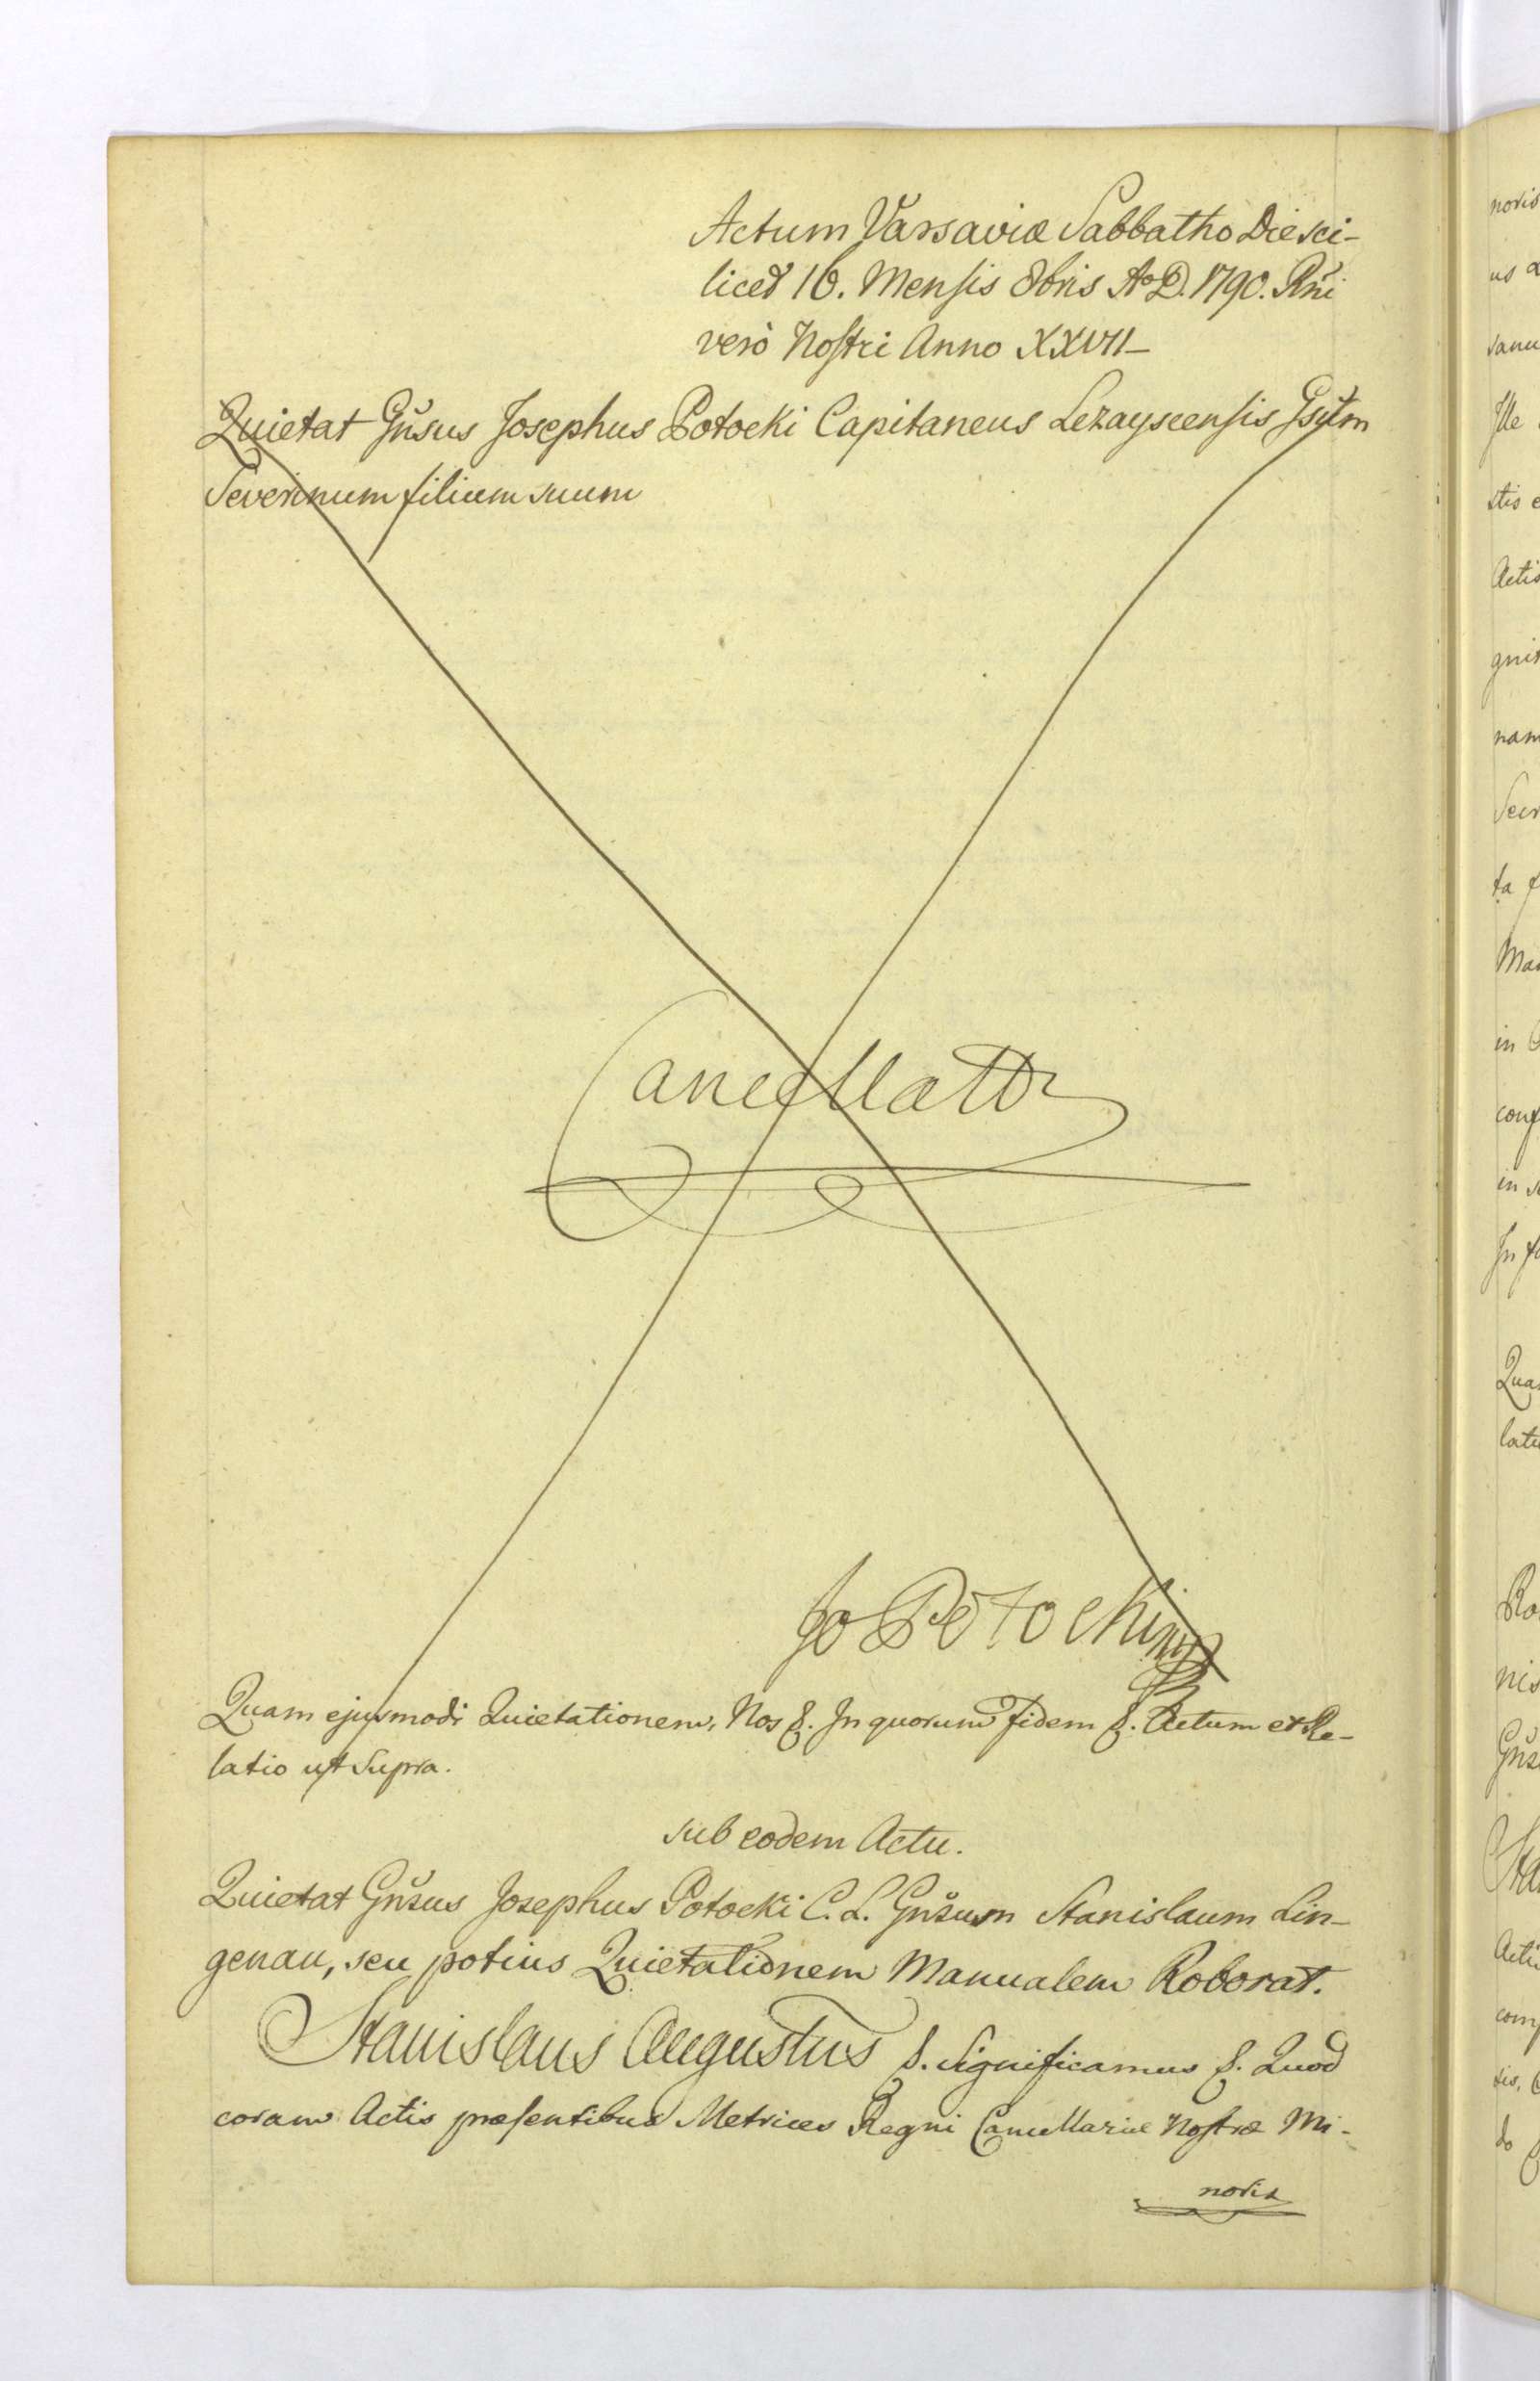 Actum Varsaviæ Sabbatho Die sci-
licet 16. Mensis 8bris A° D. 1790. Rni
verò Nostri Anno XXVII—
Quietat Gnsus Josephus Potocki Capitaneus Lezayscensis Gsum
Severinum filium suum
Cancellatur
Jo Potocki
Quam ejusmodi Quietationem, Nos &. In quorum fidem &. Actum et Re-
latio ut Supra.
sub eodem Actu.
Quietat Gnsus Josephus Potocki C. L. Gnsum Stanislaum Lin-
genau, seu potius Quietationem Manualem Roborat.
Stanislaus Augustus &. Significamus &. Quod
coram Actis præsentibus Metrices Regni Cancellariæ Nostræ Mi-
noris